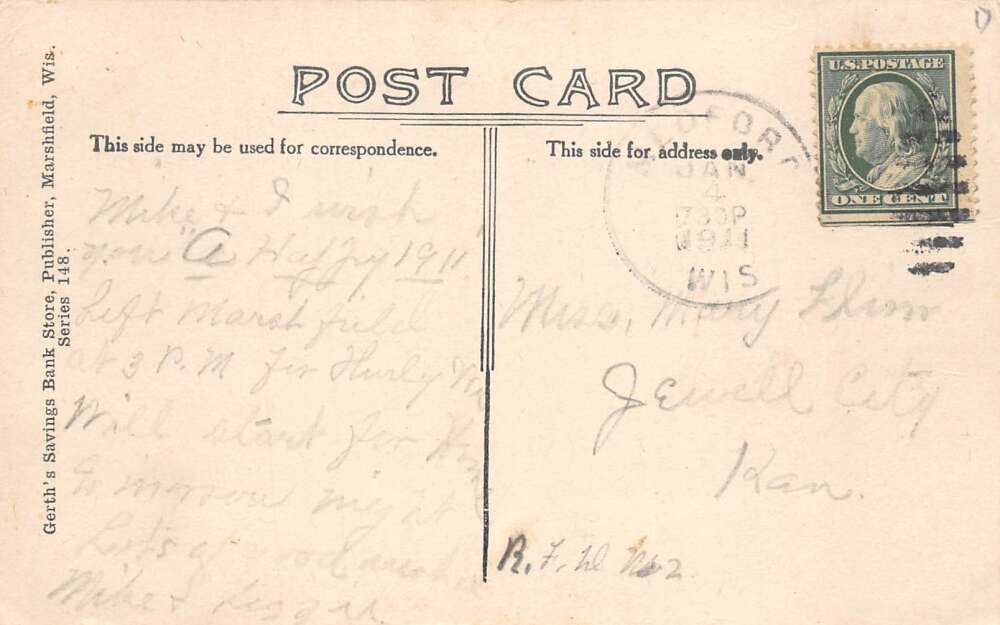 POST CARD
This side may be used for correspondence.
This side for address only.
Gerth's Savings Bank Store, Publisher, Marshfield, Wis.
Series 148.
U.S. POSTAGE
ONE CENT
JAN
4
730P
1911
WIS
Mike & I wish
you "A Happy 1911
Left Marshfield
at 3 P.M for Hurly
Will start for
to morrow night
Lots of good
Mike &
Miss, Mary
Jewell City
Kan.
R. F. D No 2